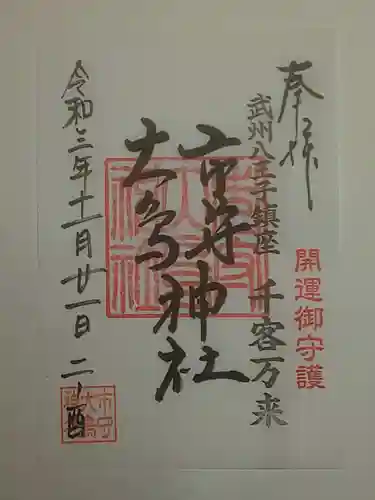 奉拝
武州八王子鎮座 千客万来
開運御守護
市守神社
大鳥神社
令和三年十一月廿一日 二ノ酉